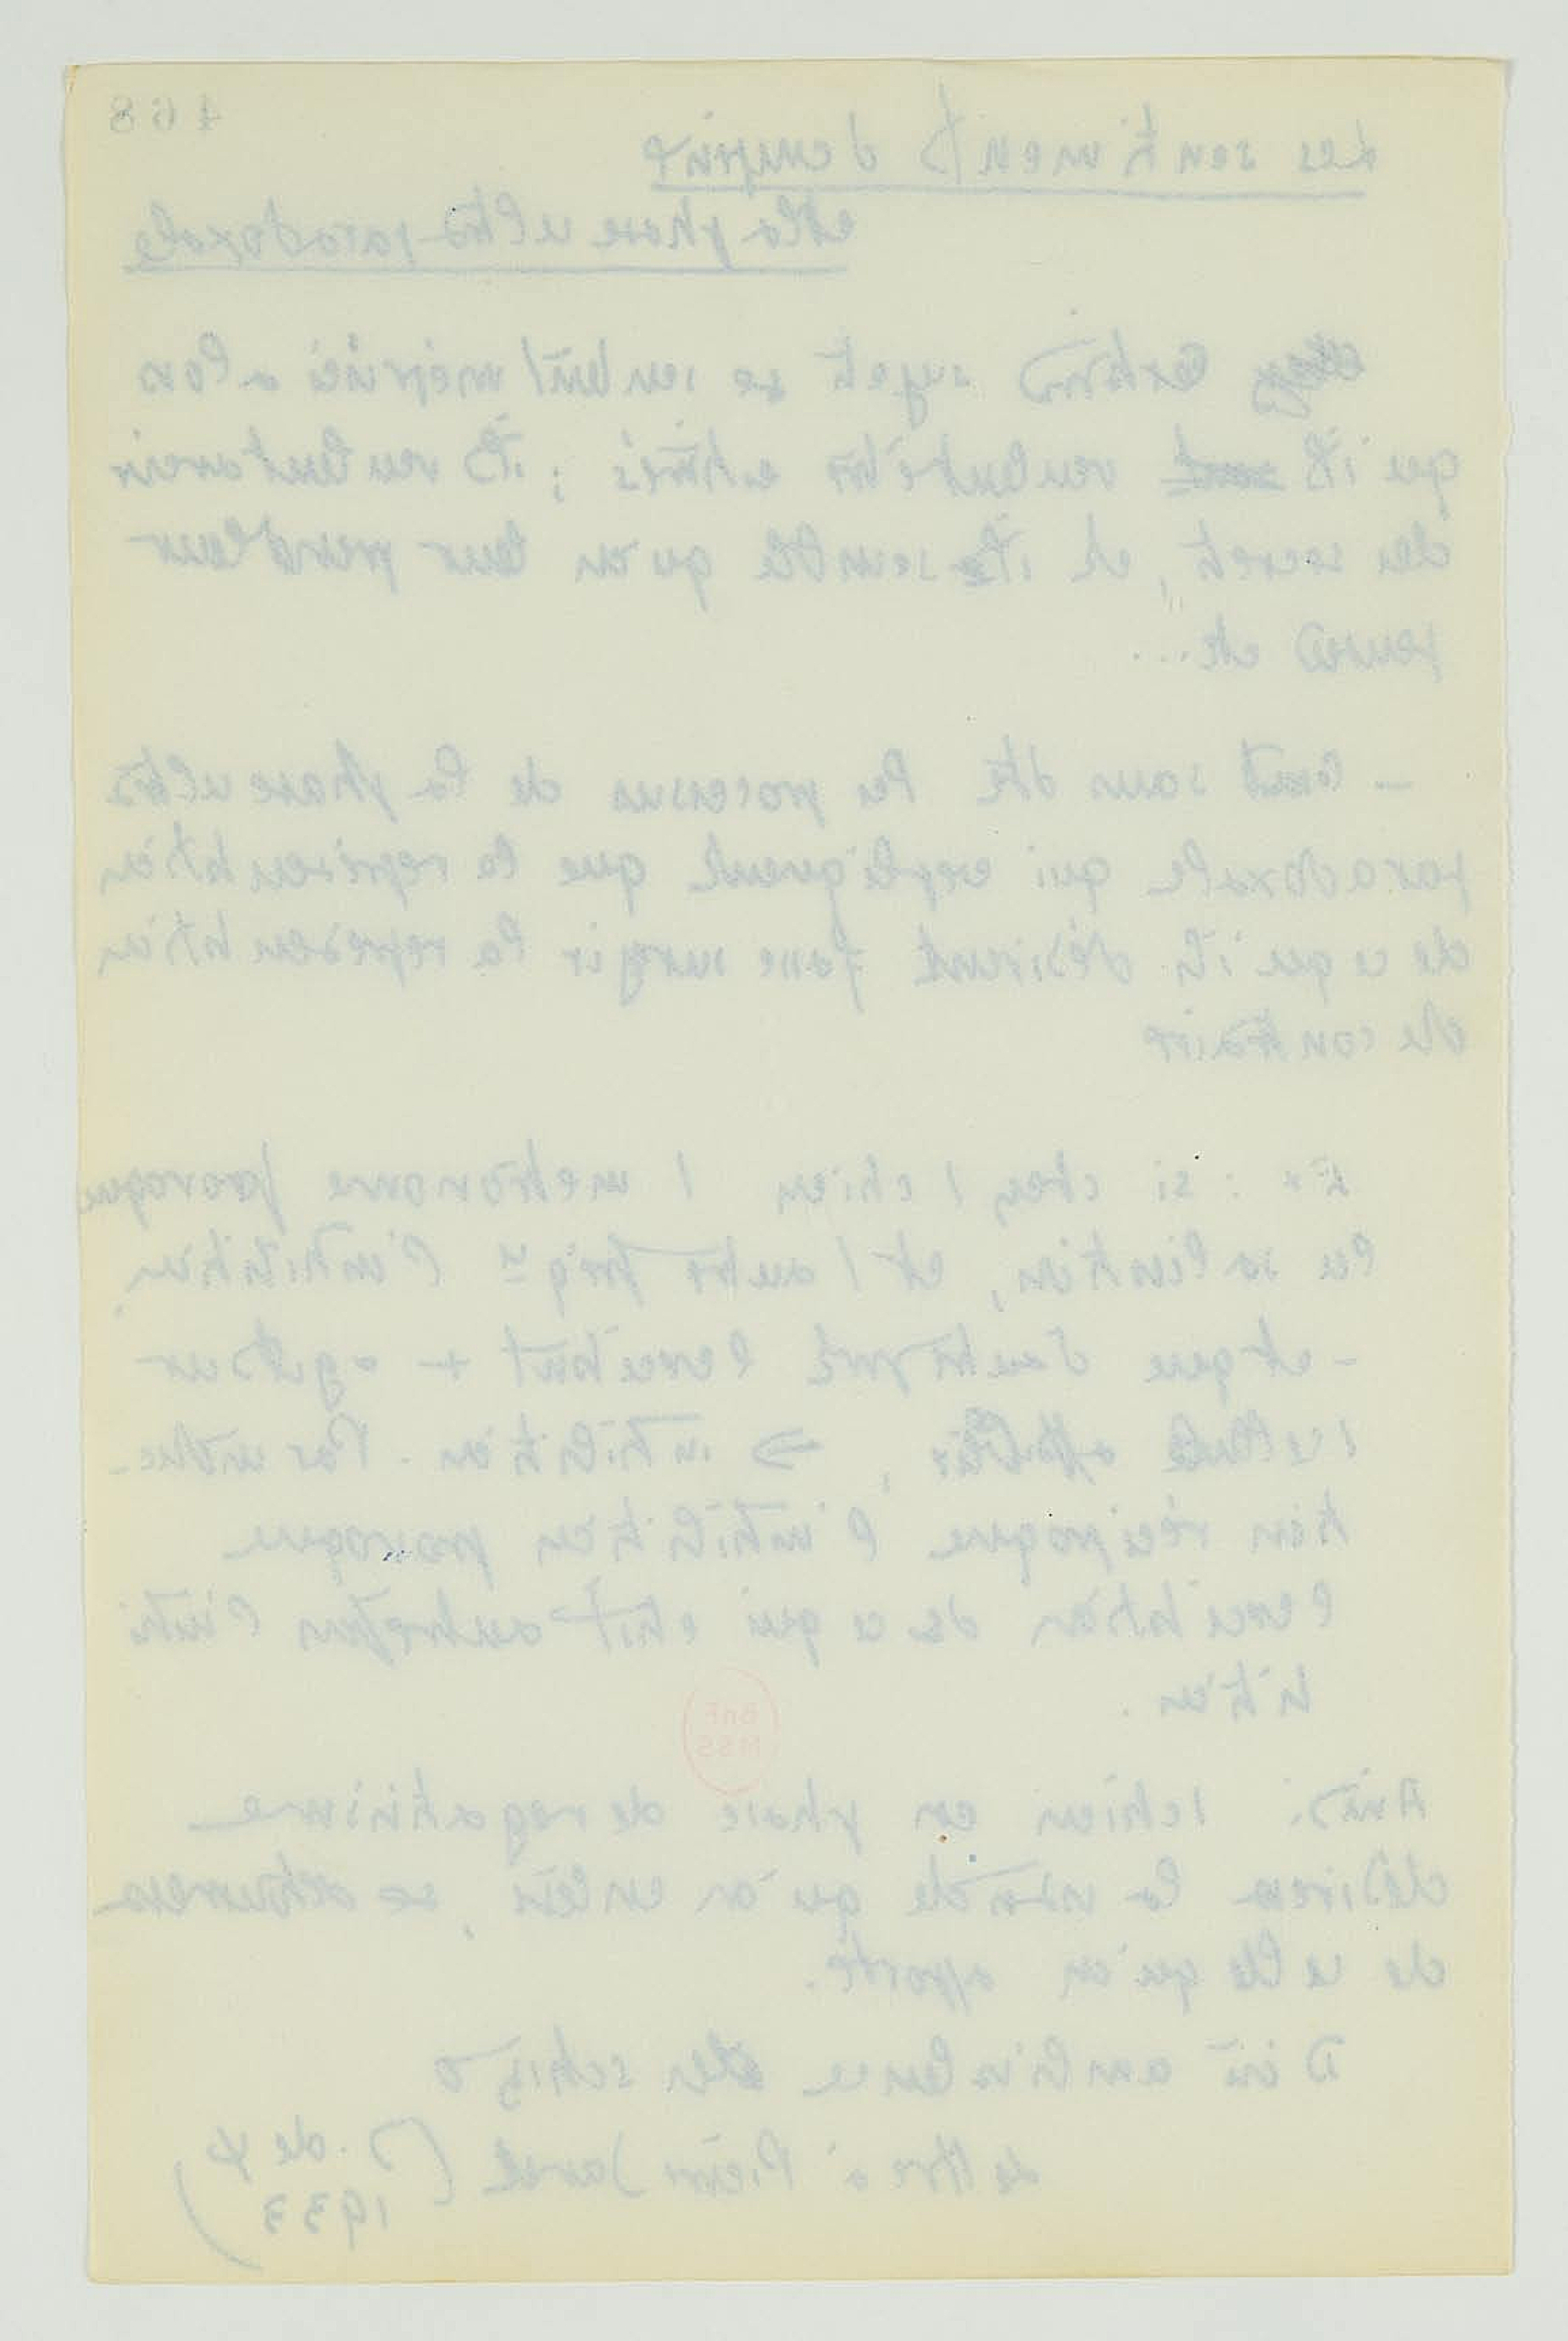 468
Les sentiments d'emprise
et la phase ultra-paradoxale
certains sujets se sentent méprisés alors
qu'ils veulent être estimés ; ils veulent avoir
des secrets, et il semble qu'on leur prend leur
pensée etc...
– Ce sont sans dte les processus de la phase ultra
paradoxale qui expliquent que la représentation
de ce qu'ils désirent fasse surgir la représentation
du contraire
Ex : si chez 1 chien 1 métronome provoque
la salivation, et 1 autre freq ce l'inhibition,
– et que d'autre part l'excitant + agit sur
1 cellule affaiblie, => inhibition. Par induc-
tion réciproque l'inhibition provoque
l'excitation de ce qui était autrefois l'inhi
bition.
Ainsi 1 chien en phase de négativisme
désirera la viande qu'on enlève, se détournera
de celle qu'on apporte.
D'où ambivalence des schizo
Lettre à Pierre Janet (J. de ψ
1933)
BnF
MSS